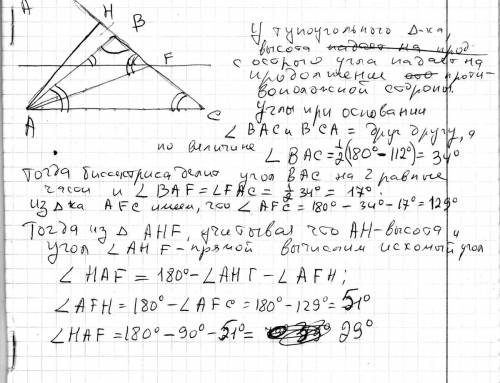 A
H
B
F
A
C
У тупоугольного Δ-ка,
высота
с острого угла падает на
продолжение проти-
воположной стороны.
Углы при основании
∠BAC и BCA = друг другу, а
по величине
∠BAC = 1/2(180° - 112°) = 34°
Тогда биссектриса делит угол BAC на 2 равные
части и ∠BAF = ∠FAC = 1/2 34° = 17°.
Из Δка AFC имеем, что ∠AFC = 180° - 34° - 17° = 129°
Тогда из Δ AHF, учитывая что AH - высота и
угол ∠AHF - прямой вычислим искомый угол
∠HAF = 180° - ∠AHF - ∠AFH;
∠AFH = 180° - ∠AFC = 180° - 129° = 51°
∠HAF = 180° - 90° - 51° = 39°